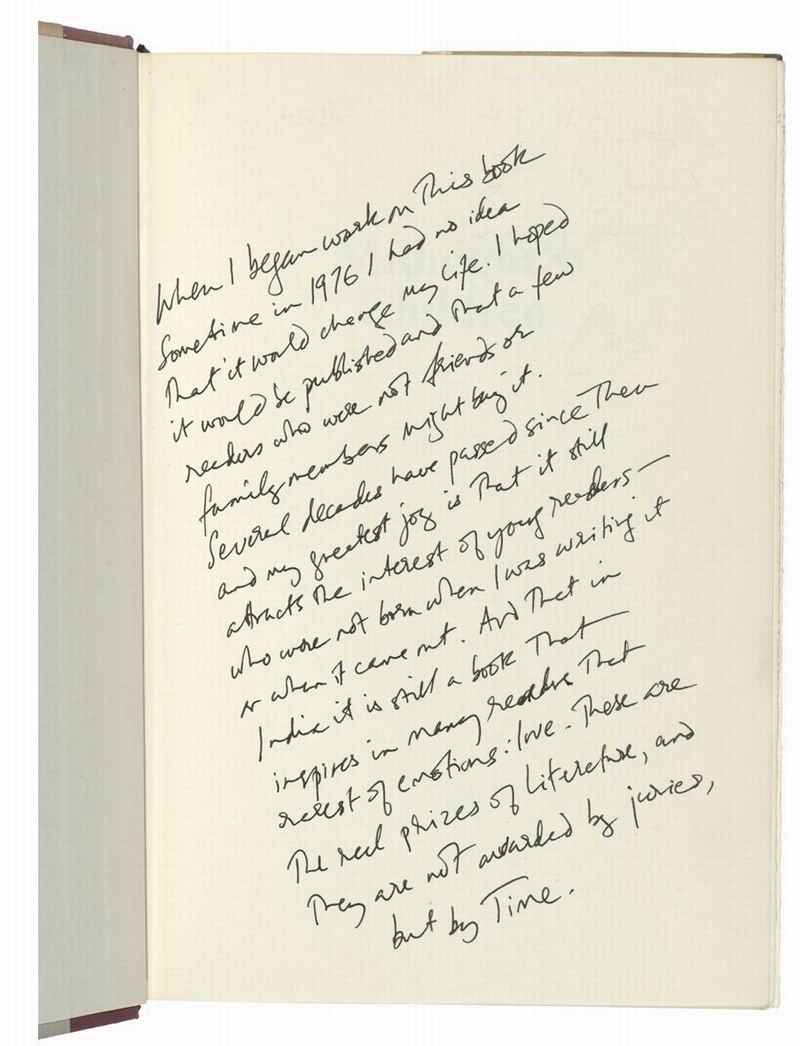 When I began work on This book
Sometime in 1976 I had no idea
That it would change my life. I hoped
it would be published and that a few
readers who were not friends or
family members might buy it.
Several decades have passed since Then
and my greatest joy is That it still
attracts The interest of young readers –
who were not born when I was writing it
or when it came out. And That in
India it is still a book That
inspires in many readers That
rarest of emotions: love. These are
The real prizes of Literature, and
They are not awarded by juries,
but by Time.